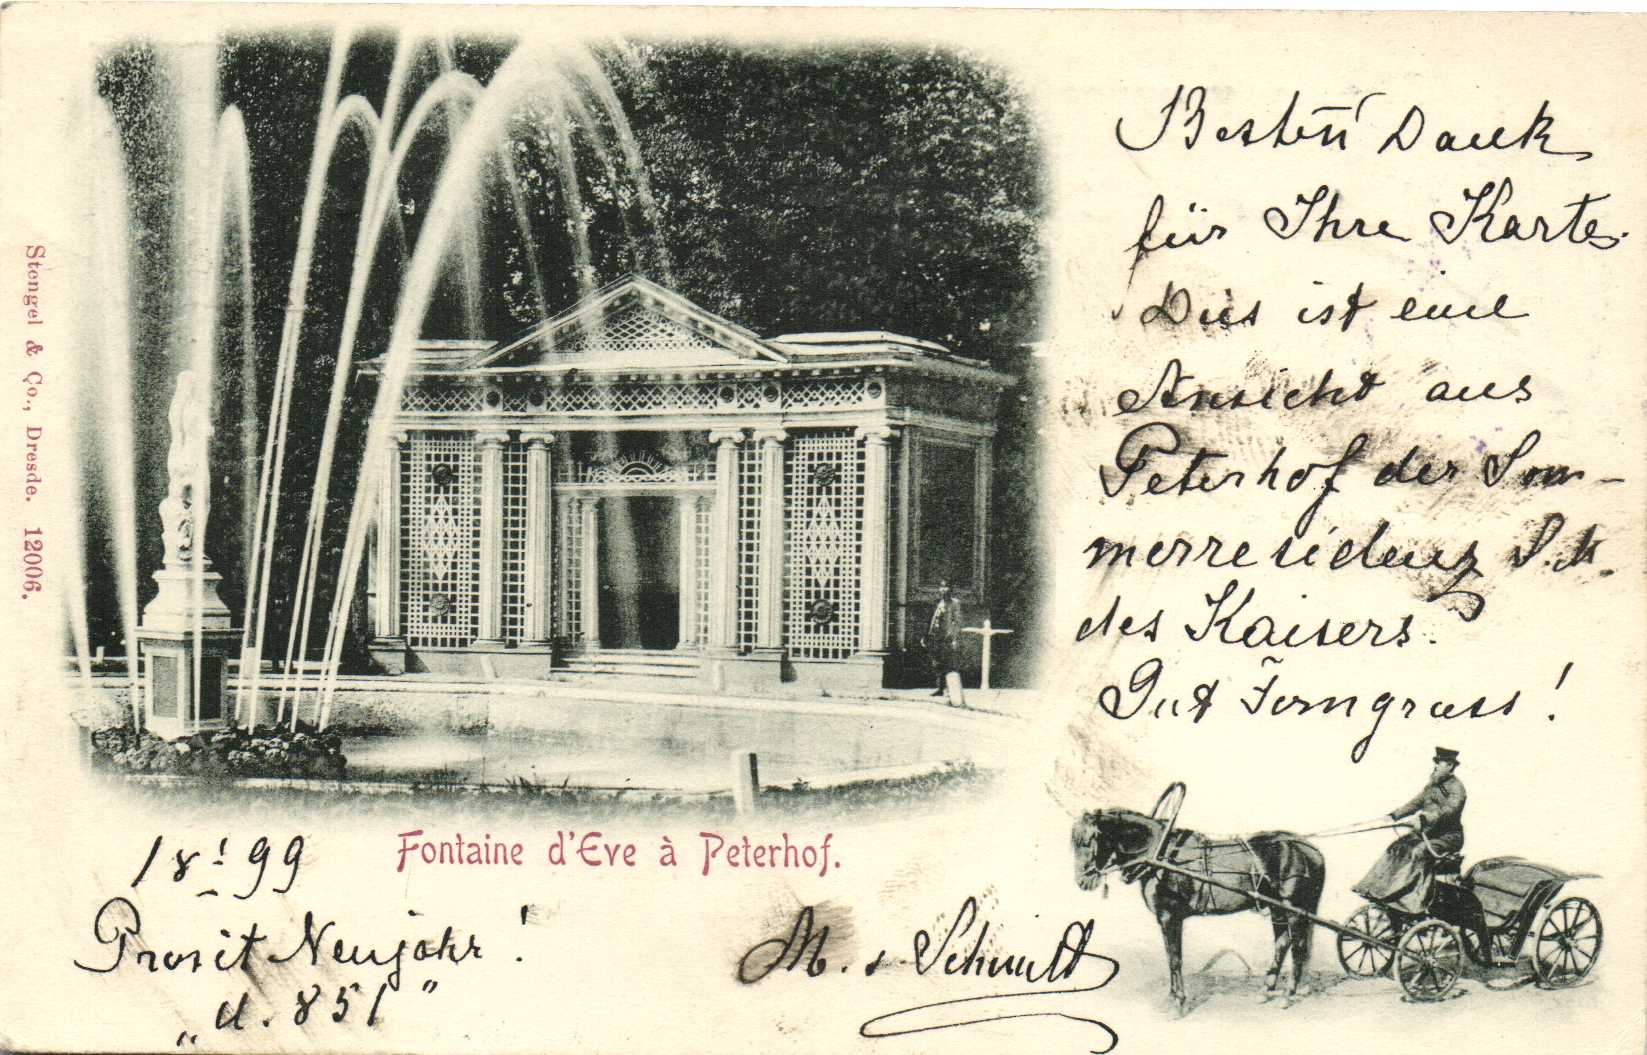 Stengel & Co., Dresde. 12006.
Besten Dank
für Ihre Karte.
Dies ist eine
Ansicht aus
Peterhof der Som-
merresidenz S. M.
des Kaisers.
Gut Ferngruss!
Fontaine d'Eve à Peterhof.
18 1/1 99
Prosit Neujahr!
„d. 851"
M. v. Schmidt